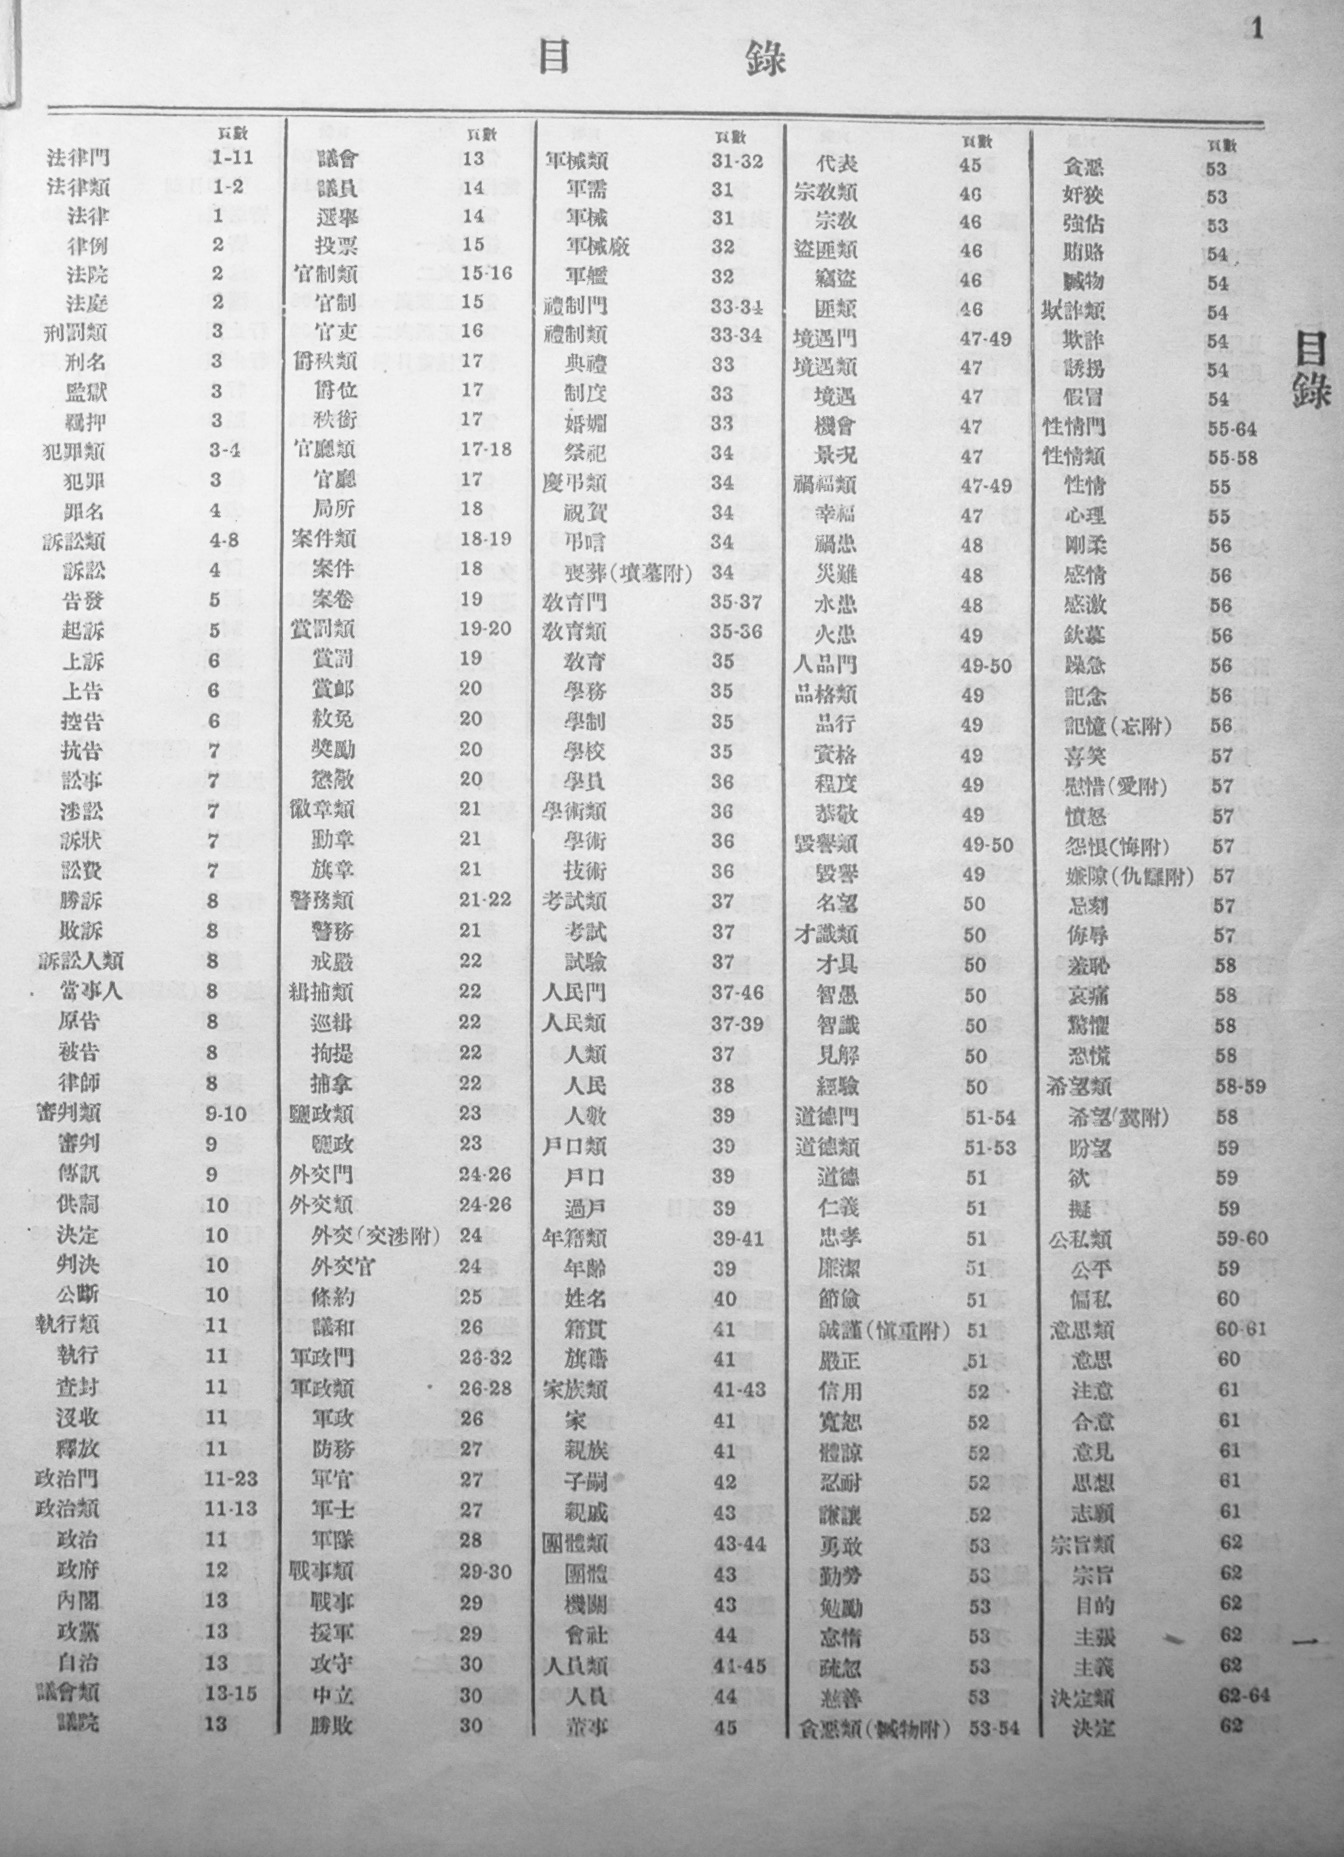 1
目錄
頁數
法律門 1-11
法律類 1-2
法律 1
律例 2
法院 2
法庭 2
刑罰類 3
刑名 3
監獄 3
羈押 3
犯罪類 3-4
犯罪 3
罪名 4
訴訟類 4-8
訴訟 4
告發 5
起訴 5
上訴 6
上告 6
控告 6
抗告 7
訟事 7
涉訟 7
訴狀 7
訟費 7
勝訴 8
敗訴 8
訴訟人類 8
當事人 8
原告 8
被告 8
律師 8
審判類 9-10
審判 9
傳訊 9
供詞 10
決定 10
判決 10
公斷 10
執行類 11
執行 11
查封 11
沒收 11
釋放 11
政治門 11-23
政治類 11-13
政治 11
政府 12
內閣 13
政黨 13
自治 13
議會類 13-15
議院 13
頁數
議會 13
議員 14
選舉 14
投票 15
官制類 15-16
官制 15
官吏 16
爵秩類 17
爵位 17
秩銜 17
官廳類 17-18
官廳 17
局所 18
案件類 18-19
案件 18
案卷 19
賞罰類 19-20
賞罰 19
賞卹 20
赦免 20
獎勵 20
懲儆 20
徽章類 21
勳章 21
旗章 21
警務類 21-22
警務 21
戒嚴 22
緝捕類 22
巡緝 22
拘提 22
捕拿 22
鹽政類 23
鹽政 23
外交門 24-26
外交類 24-26
外交(交涉附) 24
外交官 24
條約 25
議和 26
軍政門 26-32
軍政類 26-28
軍政 26
防務 27
軍官 27
軍士 27
軍隊 28
戰事類 29-30
戰事 29
援軍 29
攻守 30
中立 30
勝敗 30
頁數
軍械類 31-32
軍需 31
軍械 31
軍械廠 32
軍艦 32
禮制門 33-34
禮制類 33-34
典禮 33
制度 33
婚姻 33
祭祀 34
慶弔類 34
祝賀 34
弔唁 34
喪葬(墳墓附) 34
教育門 35-37
教育類 35-36
教育 35
學務 35
學制 35
學校 35
學員 36
學術類 36
學術 36
技術 36
考試類 37
考試 37
試驗 37
人民門 37-46
人民類 37-39
人類 37
人民 38
人數 39
戶口類 39
戶口 39
過戶 39
年籍類 39-41
年齡 39
姓名 40
籍貫 41
旗籍 41
家族類 41-43
家 41
親族 41
子嗣 42
親戚 43
團體類 43-44
團體 43
機關 43
會社 44
人員類 44-45
人員 44
董事 45
頁數
代表 45
宗教類 46
宗教 46
盜匪類 46
竊盜 46
匪類 46
境遇門 47-49
境遇類 47
境遇 47
機會 47
景況 47
禍福類 47-49
幸福 47
禍患 48
災難 48
水患 48
火患 49
人品門 49-50
品格類 49
品行 49
資格 49
程度 49
恭敬 49
毀譽類 49-50
毀譽 49
名望 50
才識類 50
才具 50
智愚 50
智識 50
見解 50
經驗 50
道德門 51-54
道德類 51-53
道德 51
仁義 51
忠孝 51
廉潔 51
節儉 51
誠謹(慎重附) 51
嚴正 51
信用 52
寬恕 52
體諒 52
忍耐 52
謙讓 52
勇敢 53
勤勞 53
勉勵 53
怠惰 53
疏忽 53
慈善 53
貪惡類(贓物附) 53-54
頁數
貪惡 53
奸狡 53
強佔 53
賄賂 54
贓物 54
欺詐類 54
欺詐 54
誘拐 54
假冒 54
性情門 55-64
性情類 55-58
性情 55
心理 55
剛柔 56
感情 56
感激 56
欽慕 56
躁急 56
記念 56
記憶(忘附) 56
喜笑 57
慰惜(愛附) 57
憤怒 57
怨恨(悔附) 57
嫌隙(仇讎附) 57
忌刻 57
侮辱 57
羞恥 58
哀痛 58
驚懼 58
恐慌 58
希望類 58-59
希望(冀附) 58
盼望 59
欲 59
擬 59
公私類 59-60
公平 59
偏私 60
意思類 60-61
意思 60
注意 61
合意 61
意見 61
思想 61
志願 61
宗旨類 62
宗旨 62
目的 62
主張 62
主義 62
決定類 62-64
決定 62
目錄
一